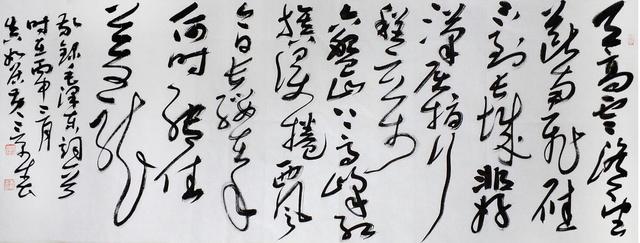 天高雲淡望
断南飛雁
不到长城非好
漢屈指行
程二万
六盤山上高峰红
旗漫捲西风
今日长缨在手
何时缚住
苍龙
敬録毛泽东词一首
时在丙申二月